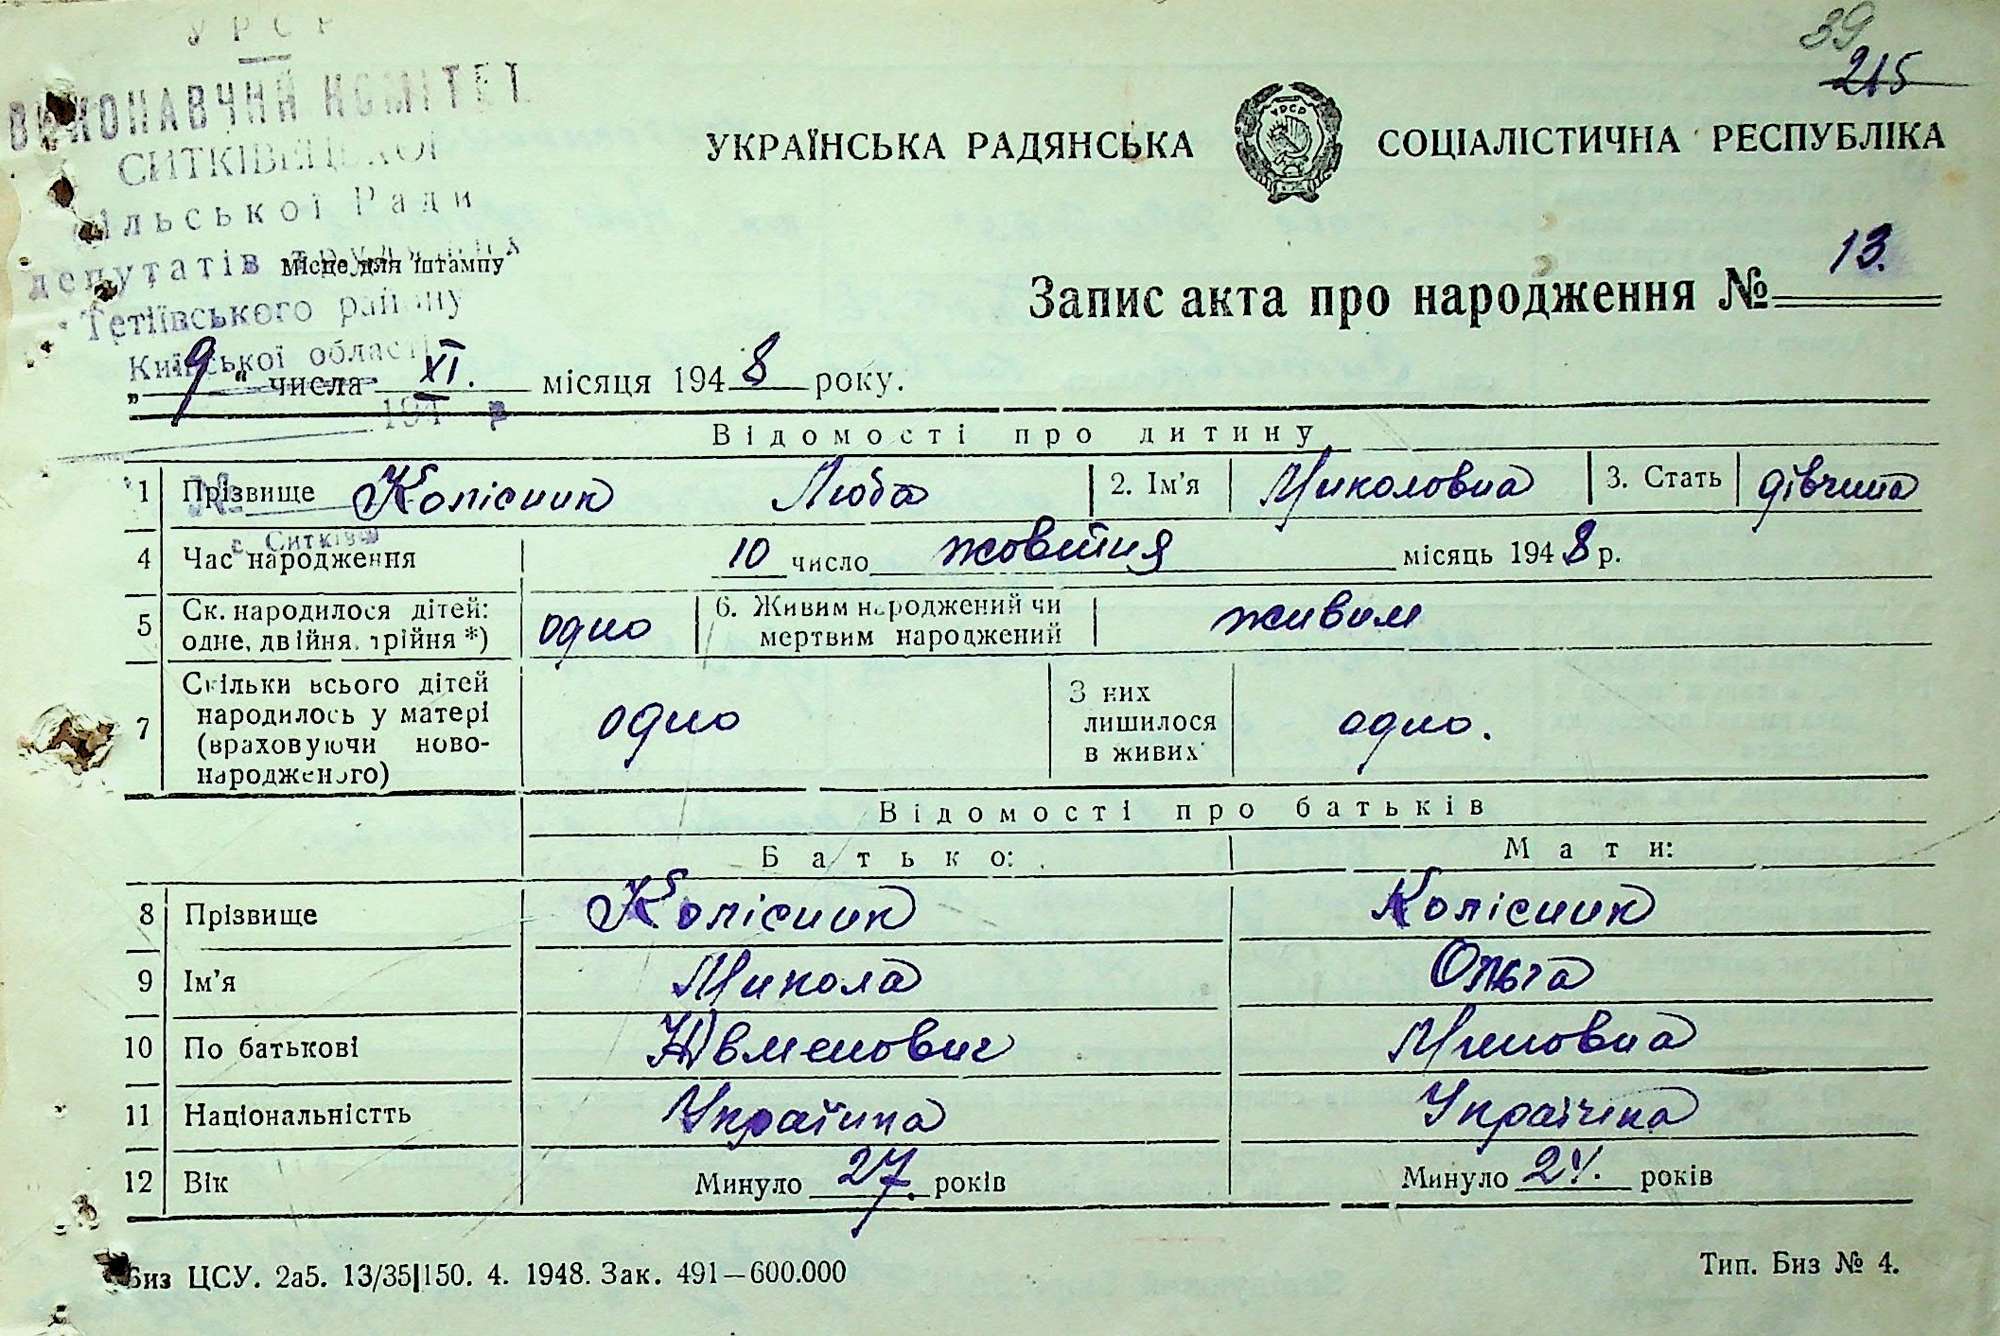 39
215
УРСР
ВИКОНАВЧИЙ КОМІТЕТ
СИТКІВЕЦЬКОЇ
сільської Ради
депутатів трудящих
місце для штампу
Тетіївського району
Київської області
194 р
№
с. Ситківці
УКРАЇНСЬКА РАДЯНСЬКА СОЦІАЛІСТИЧНА РЕСПУБЛІКА
УРСР
Запис акта про народження № 13.
„9“ числа XI. місяця 1948 року.
Відомості про дитину
1 Прізвище Колісник Люба 2. Ім'я Миколовна 3. Стать дівчина
4 Час народження 10 число жовтня місяць 1948 р.
5 Ск. народилося дітей: одне, двійня, трійня *) одно 6. Живим народжений чи мертвим народжений живим
7 Скільки всього дітей народилось у матері (враховуючи ново-народженого) одно З них лишилося в живих одно.
Відомості про батьків
Батько: Мати:
8 Прізвище Колісник Колісник
9 Ім'я Микола Ольга
10 По батькові Явменович
11 Національністть Українець Українка
12 Вік Минуло 27. років Минуло 24. років
Биз ЦСУ. 2а5. 13/35|150. 4. 1948. Зак. 491—600.000 Тип. Биз № 4.